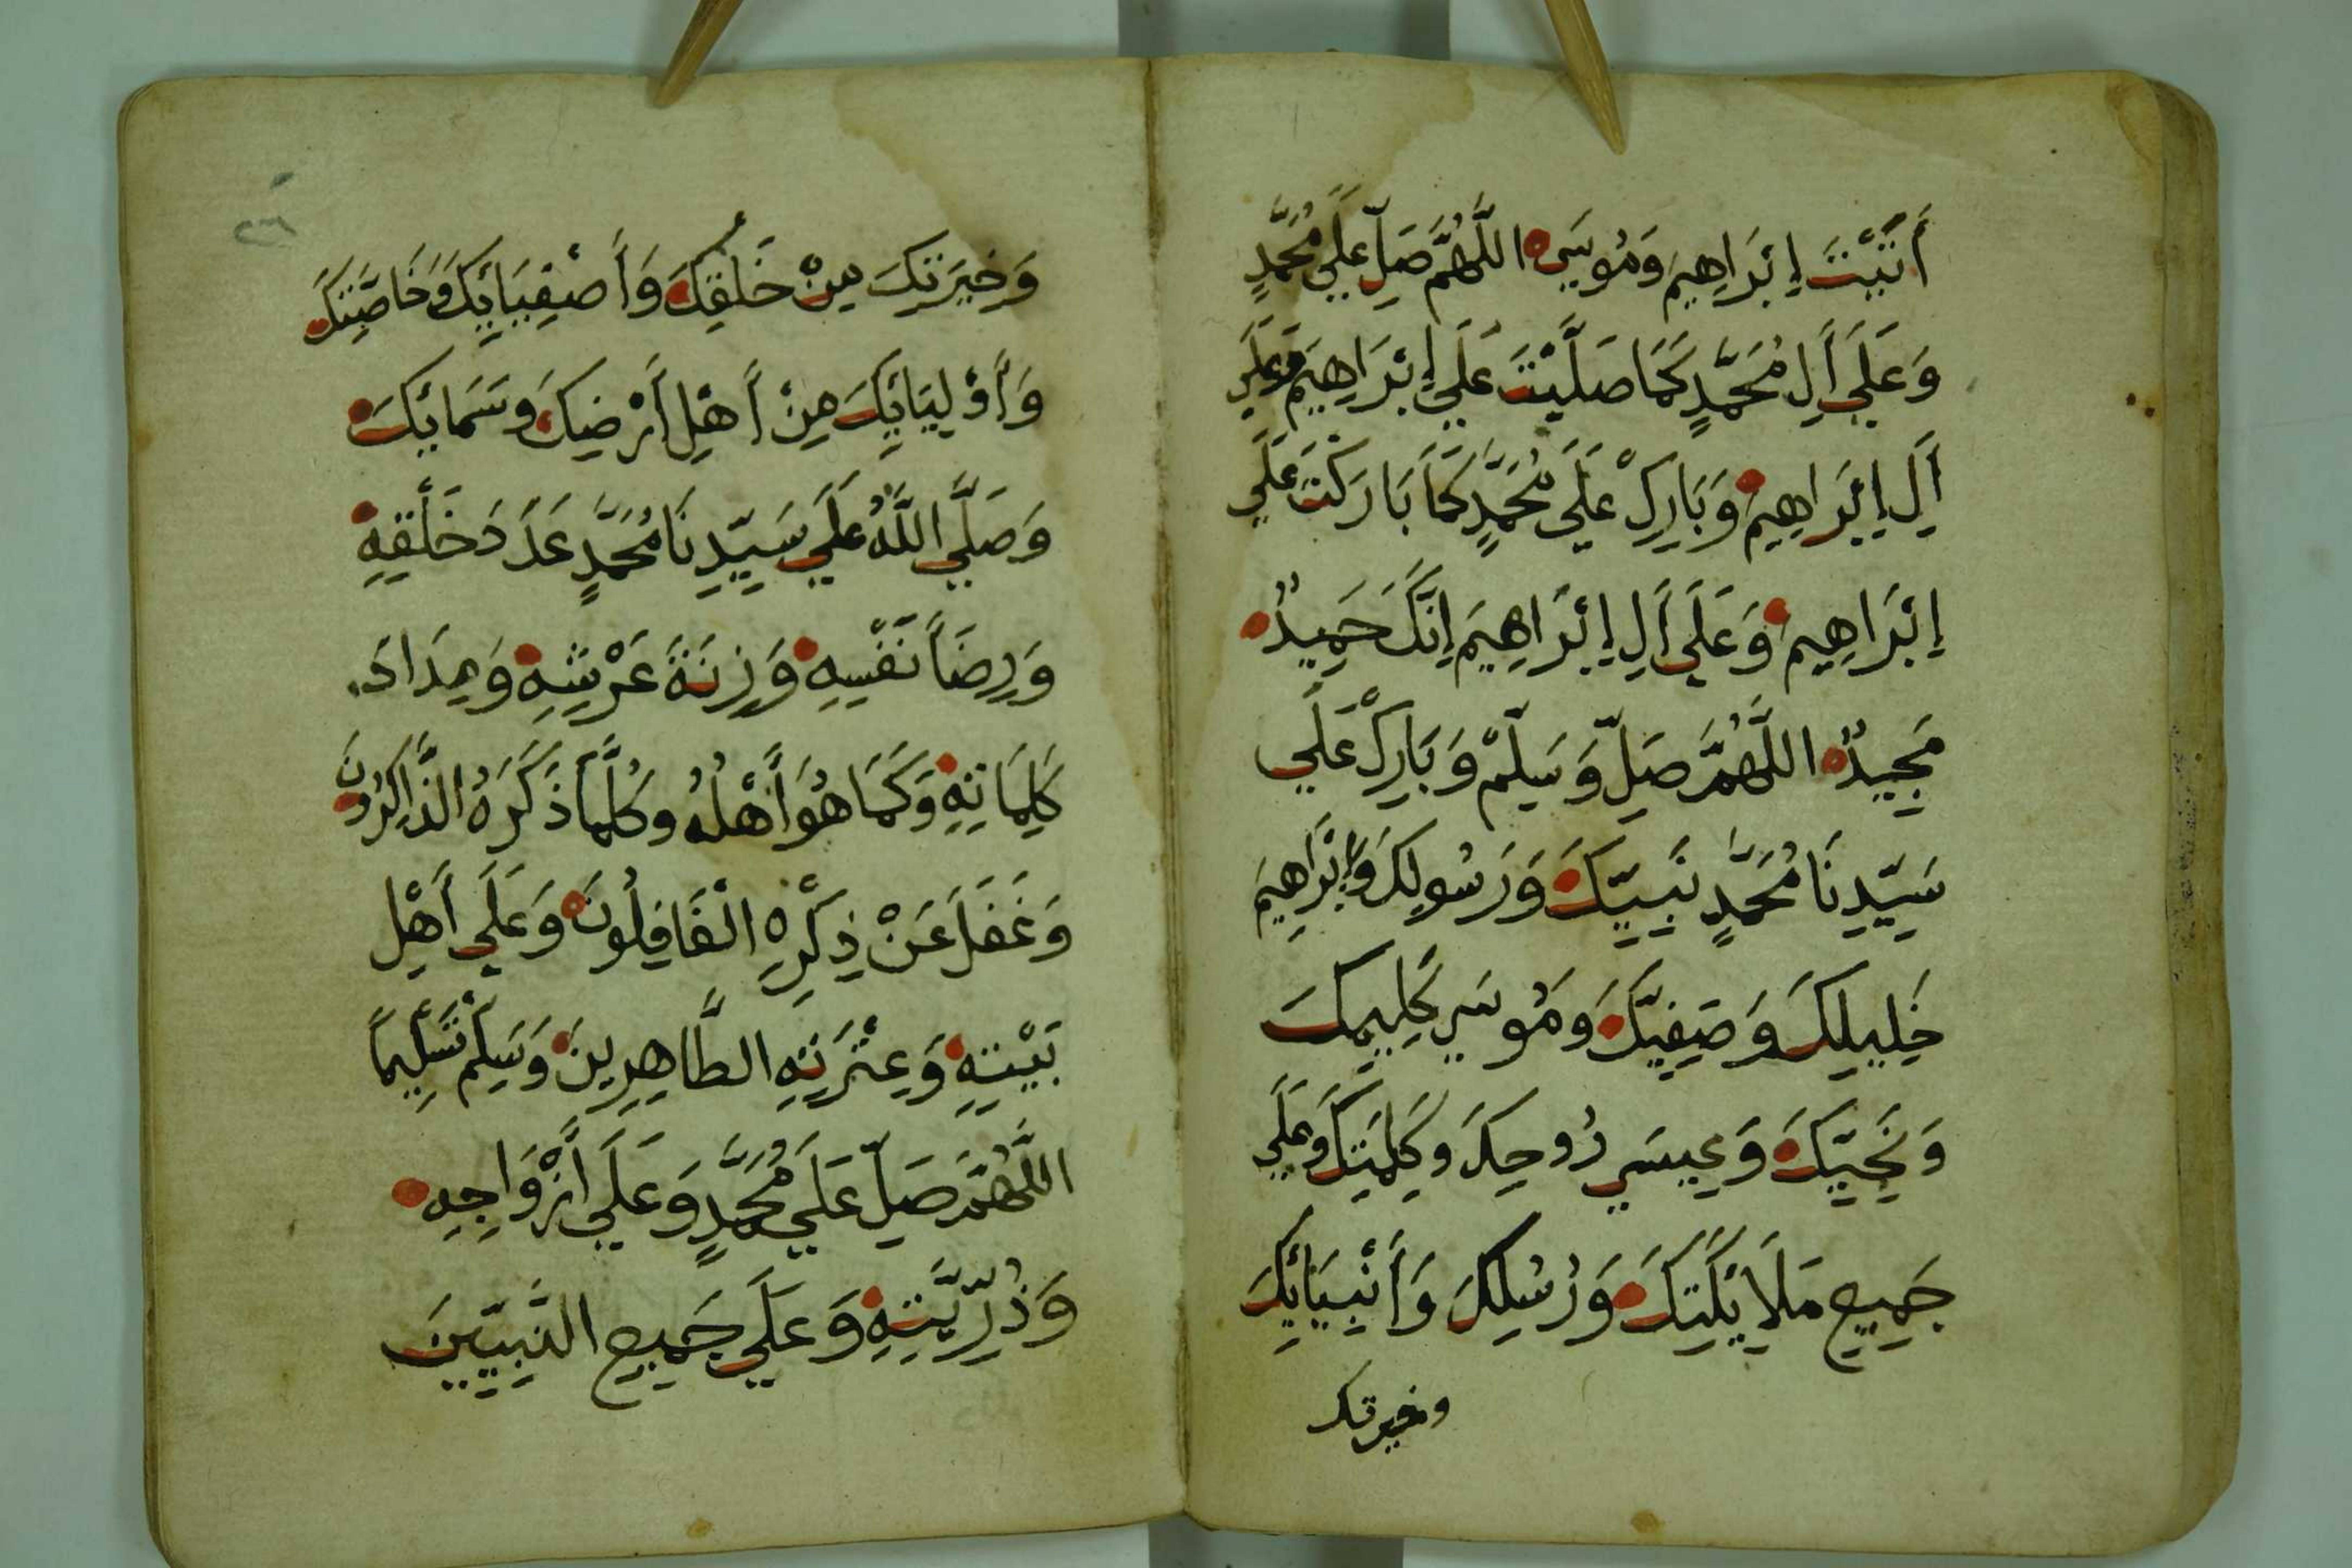 أَتَيْتَ إِبْرَاهِيمَ وَمُوسَى اللَّهُمَّ صَلِّ عَلَى مُحَمَّدٍ
وَعَلَى أَلِ مُحَمَّدٍ كَمَا صَلَّيْتَ عَلَى إِبْرَاهِيمَ وَعَلَى
أَلِ إِبْرَاهِيمَ وَبَارِكْ عَلَى مُحَمَّدٍ كَمَا بَارَكْتَ عَلَى
إِبْرَاهِيمَ وَعَلَى أَلِ إِبْرَاهِيمَ إِنَّكَ حَمِيدٌ
مَجِيدٌ اللَّهُمَّ صَلِّ وَسَلِّمْ وَبَارِكْ عَلَى
سَيِّدِنَا مُحَمَّدٍ نَبِيِّكَ وَرَسُولِكَ وَإِبْرَاهِيمَ
خَلِيلِكَ وَصَفِيِّكَ وَمُوسَى كَلِيمِكَ
وَنَجِيِّكَ وَعِيسَى رُوحِكَ وَكَلِمَتِكَ وَعَلَى
جَمِيعِ مَلَايِكَتِكَ وَرُسُلِكَ وَأَنْبِيَائِكَ
وخيرتك
٢٦
وَخِيَرَتِكَ مِنْ خَلْقِكَ وَأَصْفِيَائِكَ وَخَاصَّتِكَ
وَأَوْلِيَائِكَ مِنْ أَهْلِ أَرْضِكَ وَسَمَائِكَ
وَصَلَّى اللَّهُ عَلَى سَيِّدِنَا مُحَمَّدٍ عَدَدَ خَلْقِهِ
وَرِضَاً نَفْسِهِ وَزِنَةَ عَرْشِهِ وَمِدَادَ
كَلِمَاتِهِ وَكَمَا هُوَ أَهْلُهُ وَكُلَّمَا ذَكَرَهُ الذَّاكِرُونَ
وَغَفَلَ عَنْ ذِكْرِهِ الْغَافِلُونَ وَعَلَى أَهْلِ
بَيْتِهِ وَعِتْرَتِهِ الطَّاهِرِينَ وَسَلِّمْ تَسْلِيماً
اللَّهُمَّ صَلِّ عَلَى مُحَمَّدٍ وَعَلَى أَزْوَاجِهِ
وَذُرِّيَّتِهِ وَعَلَى جَمِيعِ النَّبِيِّينَ